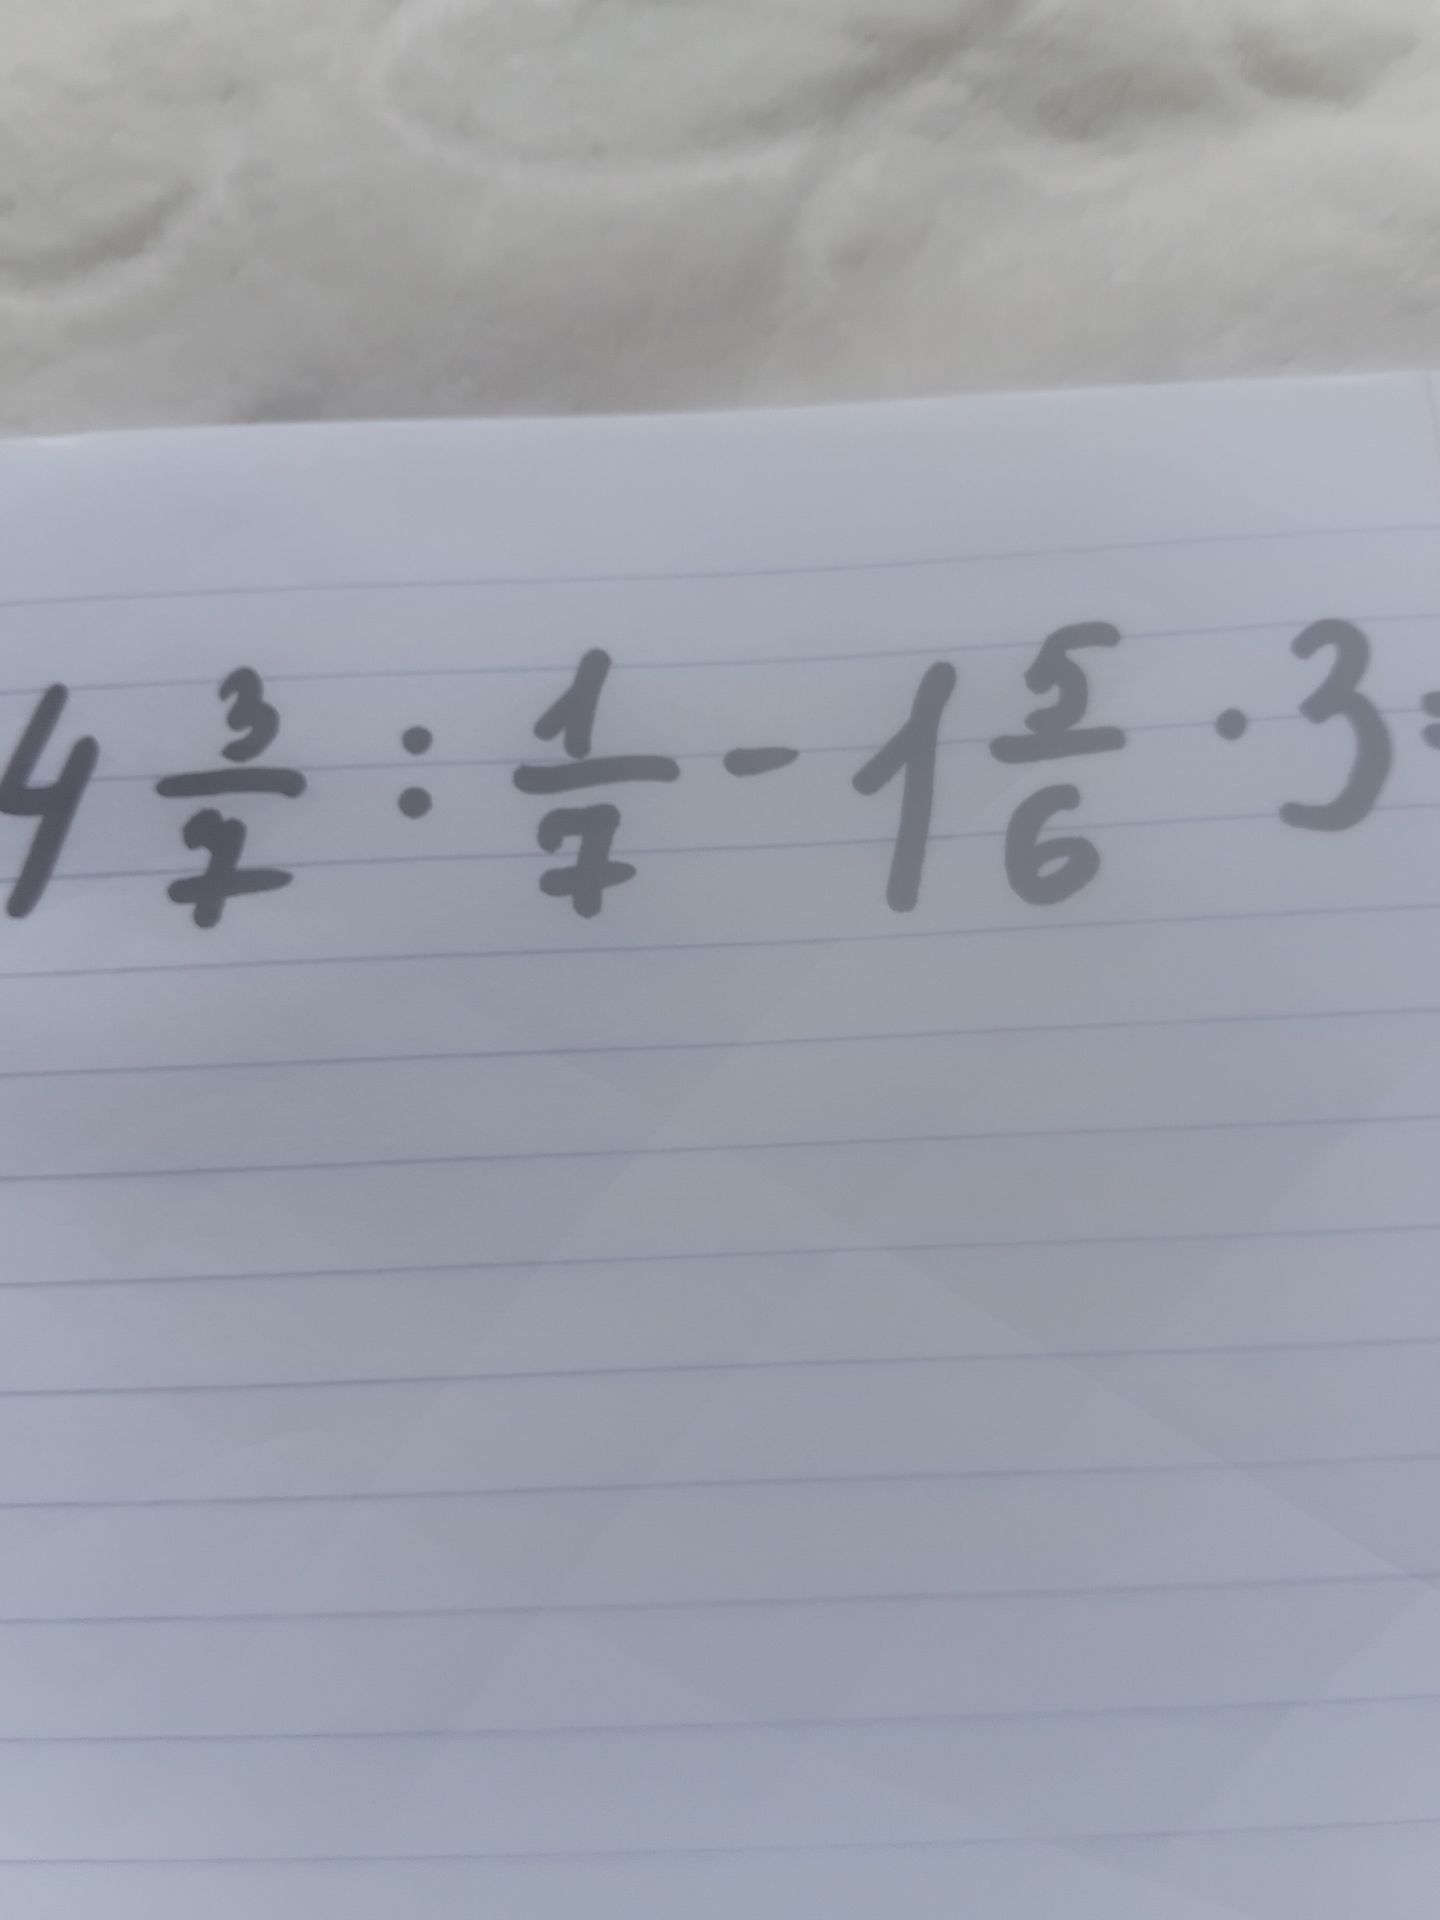 4 3/7 : 1/7 - 1 5/6 · 3 =